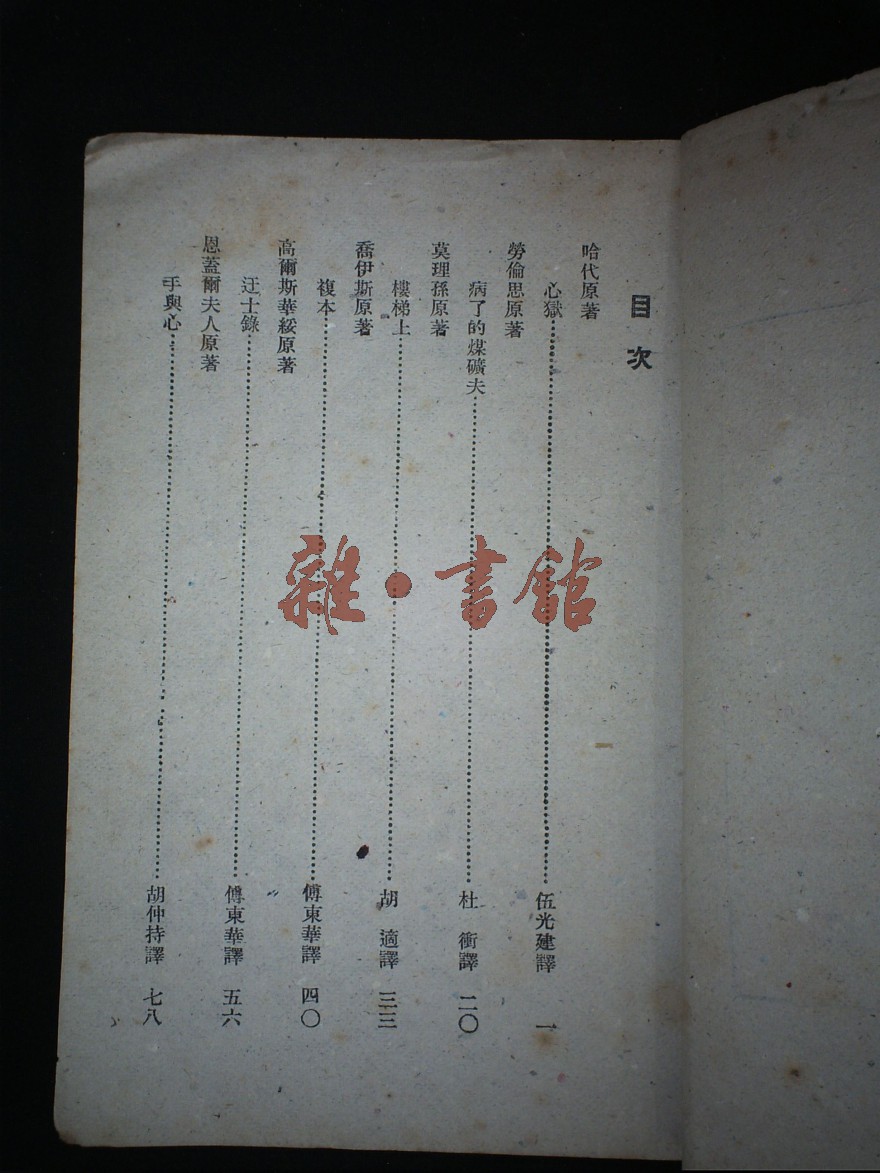 目次
哈代原著
心獄……伍光建譯 一
勞倫思原著
病了的煤礦夫……杜衡譯 二〇
莫理孫原著
樓梯上……胡適譯 三三
喬伊斯原著
複本……傅東華譯 四〇
高爾斯華綏原著
迂士錄……傅東華譯 五六
恩蓋爾夫人原著
手與心……胡仲持譯 七八
雜·書館